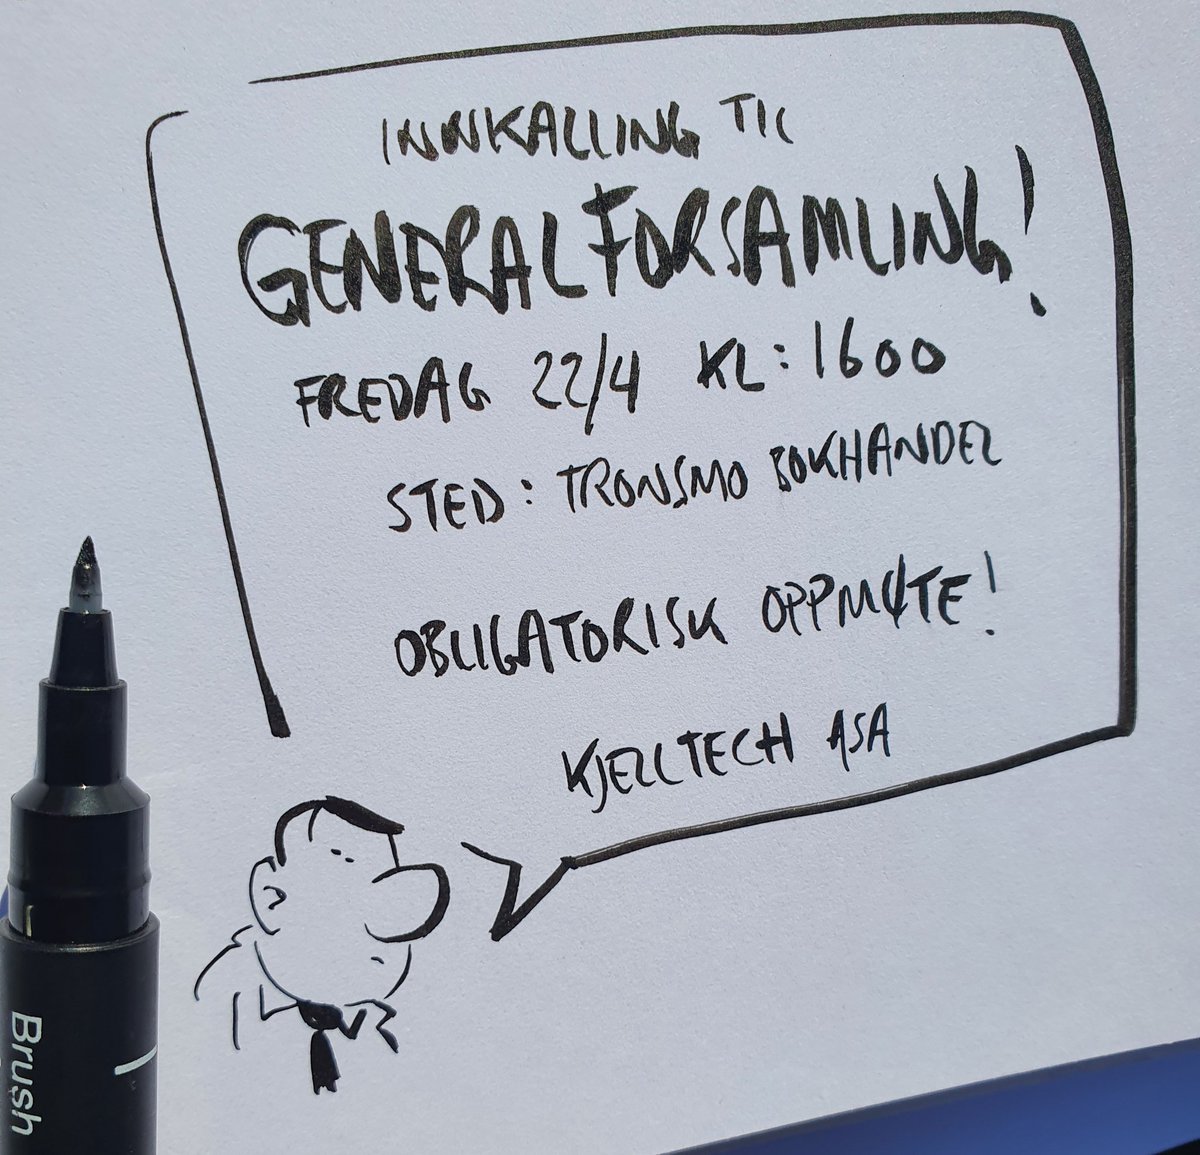 INNKALLING TIL
GENERALFORSAMLING!
FREDAG 22/4 KL: 1600
STED: TRONSMO BOKHANDEL
OBLIGATORISK OPPMØTE!
KJELLTECH ASA
Brush